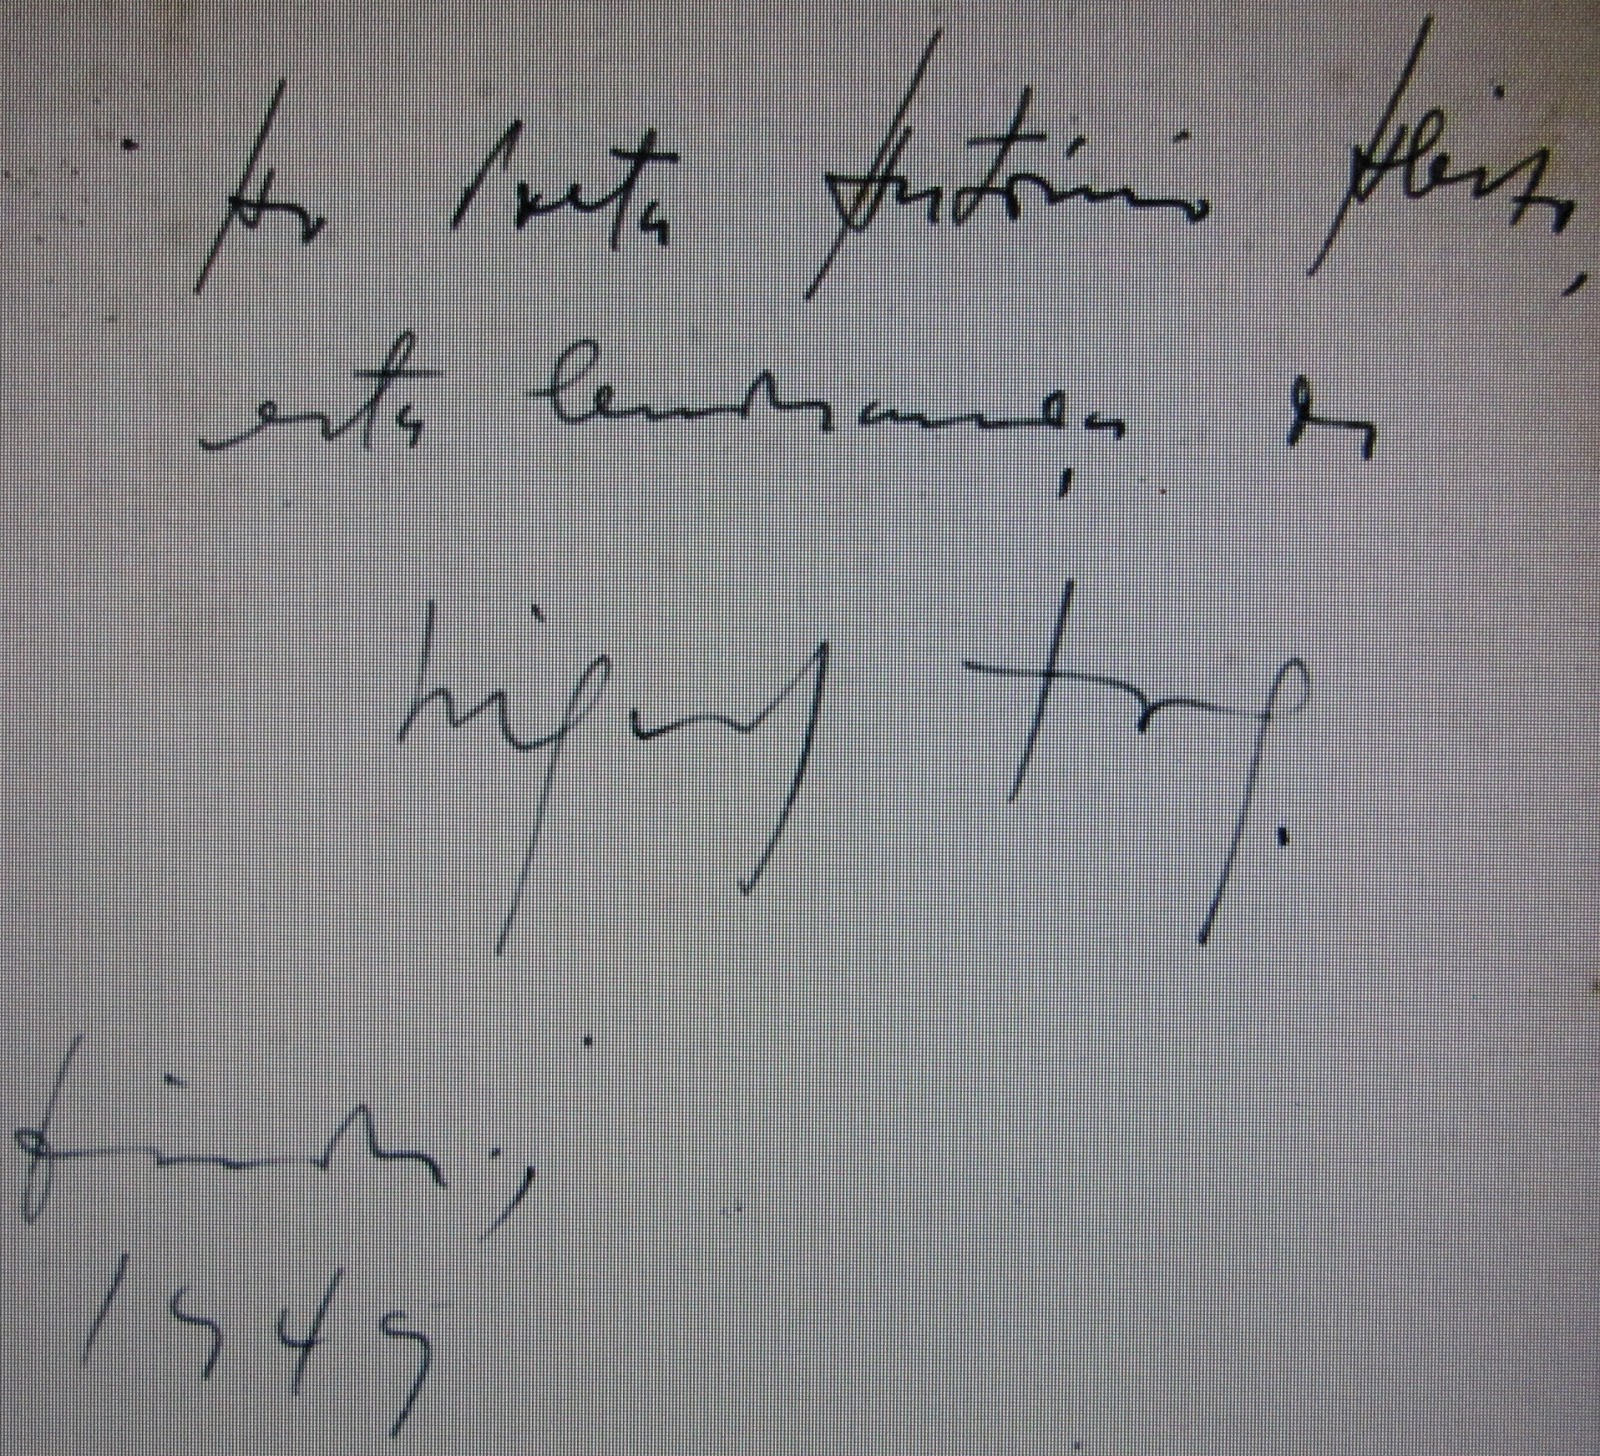 Ao Poeta António Aleixo,
esta lembrança do
Miguel Torga.
Coimbra,
1949